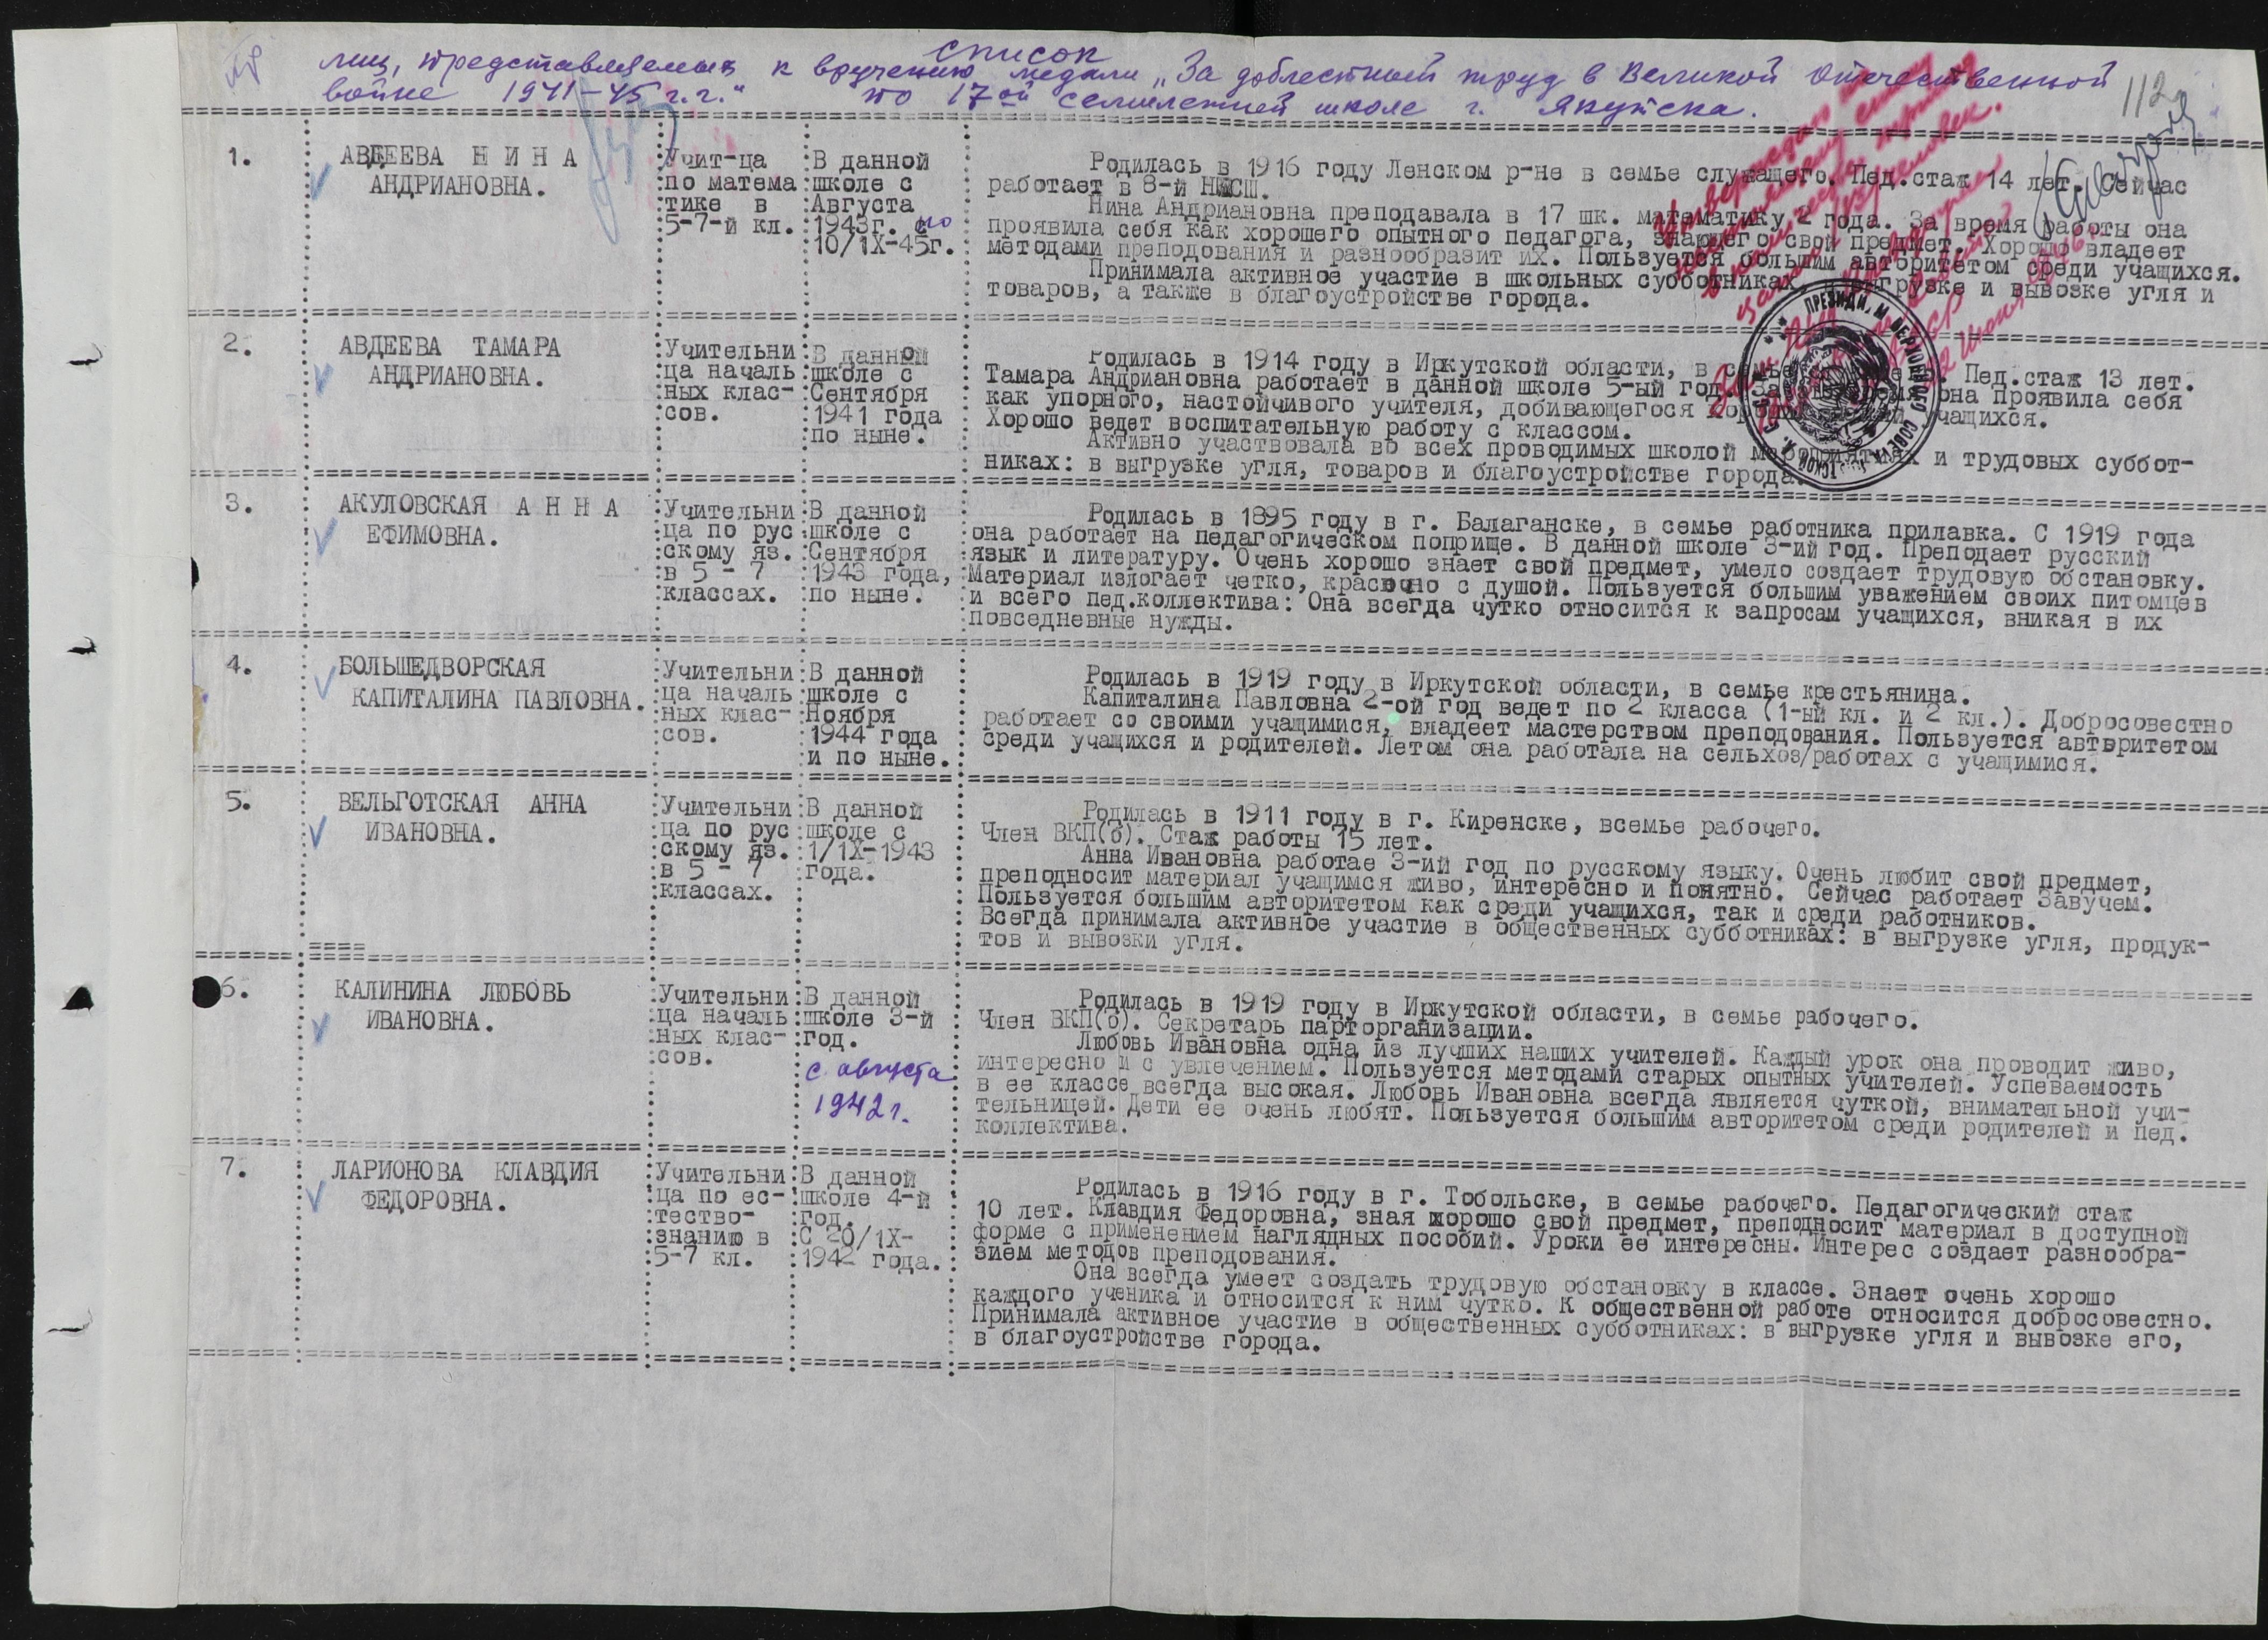 список
лиц, представляемых к вручению медали „За доблестный труд в Великой Отечественной
войне 1941-45 г.г." по 17ой семилетней школе г. Якутска.
112
1.
АВДЕЕВА Н И Н А
АНДРИАНОВНА.
Учит-ца
по матема
тике в
5-7-й кл.
В данной
школе с
Августа
1943г. по
10/IX-45г.
Родилась в 1916 году Ленском р-не в семье служащего. Пед.стаж 14 лет. Сейчас
работает в 8-й НСШ.
Нина Андриановна преподавала в 17 шк. математику 2 года. За время работы она
проявила себя как хорошего опытного педагога, знающего свой предмет. Хорошо владеет
методами преподования и разнообразит их. Пользуется большим авторитетом среди учащихся.
Принимала активное участие в школьных субботниках, выгрузке и вывозке угля и
товаров, а также в благоустройстве города.
2.
АВДЕЕВА ТАМАРА
АНДРИАНОВНА.
Учительни
ца началь
ных клас-
сов.
В данной
школе с
Сентября
1941 года
по ныне.
Родилась в 1914 году в Иркутской области, в Пед.стаж 13 лет.
Тамара Андриановна работает в данной школе 5-ый год. она проявила себя
как упорного, настойчивого учителя, добивающегося учащихся.
Хорошо ведет воспитательную работу с классом.
Активно участвовала во всех проводимых школой и трудовых суббот-
никах: в выгрузке угля, товаров и благоустройстве города.
3.
АКУЛОВСКАЯ А Н Н А
ЕФИМОВНА.
Учительни
ца по рус
скому яз.
в 5 - 7
классах.
В данной
школе с
Сентября
1943 года,
по ныне.
Родилась в 1895 году в г. Балаганске, в семье работника прилавка. С 1919 года
она работает на педагогическом поприще. В данной школе 3-ий год. Преподает русский
язык и литературу. Очень хорошо знает свой предмет, умело создает трудовую обстановку.
Материал излогает четко, красочно с душой. Пользуется большим уважением своих питомцев
и всего пед.коллектива: Она всегда чутко относится к запросам учащихся, вникая в их
повседневные нужды.
4.
БОЛЬШЕДВОРСКАЯ
КАПИТАЛИНА ПАВЛОВНА.
Учительни
ца началь
ных клас-
сов.
В данной
школе с
Ноября
1944 года
и по ныне.
Родилась в 1919 году в Иркутской области, в семье крестьянина.
Капиталина Павловна 2-ой год ведет по 2 класса (1-ый кл. и 2 кл.). Добросовестно
работает со своими учащимися, владеет мастерством преподования. Пользуется авторитетом
среди учащихся и родителей. Летом она работала на сельхоз/работах с учащимися.
5.
ВЕЛЬГОТСКАЯ АННА
ИВАНОВНА.
Учительни
ца по рус
скому яз.
в 5 - 7
классах.
В данной
школе с
1/IX-1943
года.
Родилась в 1911 году в г. Киренске, всемье рабочего.
Член ВКП(б). Стаж работы 15 лет.
Анна Ивановна работае 3-ий год по русскому языку. Очень любит свой предмет,
преподносит материал учащимся живо, интересно и понятно. Сейчас работает Завучем.
Пользуется большим авторитетом как среди учащихся, так и среди работников.
Всегда принимала активное участие в общественных субботниках: в выгрузке угля, продук-
тов и вывозки угля.
6.
КАЛИНИНА ЛЮБОВЬ
ИВАНОВНА.
Учительни
ца началь
ных клас-
сов.
В данной
школе 3-й
год.
с августа
1942 г.
Родилась в 1919 году в Иркутской области, в семье рабочего.
Член ВКП(б). Секретарь парторганизации.
Любовь Ивановна одна из лучших наших учителей. Каждый урок она проводит живо,
интересно и с увлечением. Пользуется методами старых опытных учителей. Успеваемость
в ее классе всегда высокая. Любовь Ивановна всегда является чуткой, внимательной учи-
тельницей. Дети ее очень любят. Пользуется большим авторитетом среди родителей и пед.
коллектива.
7.
ЛАРИОНОВА КЛАВДИЯ
ФЕДОРОВНА.
Учительни
ца по ес-
тество-
знанию в
5-7 кл.
В данной
школе 4-й
год.
С 20/IX-
1942 года.
Родилась в 1916 году в г. Тобольске, в семье рабочего. Педагогический стаж
10 лет. Клавдия Федоровна, зная хорошо свой предмет, преподносит материал в доступной
форме с применением наглядных пособий. Уроки ее интересны. Интерес создает разнообра-
зием методов преподования.
Она всегда умеет создать трудовую обстановку в классе. Знает очень хорошо
каждого ученика и относится к ним чутко. К общественной работе относится добросовестно.
Принимала активное участие в общественных субботниках: в выгрузке угля и вывозке его,
в благоустройстве города.